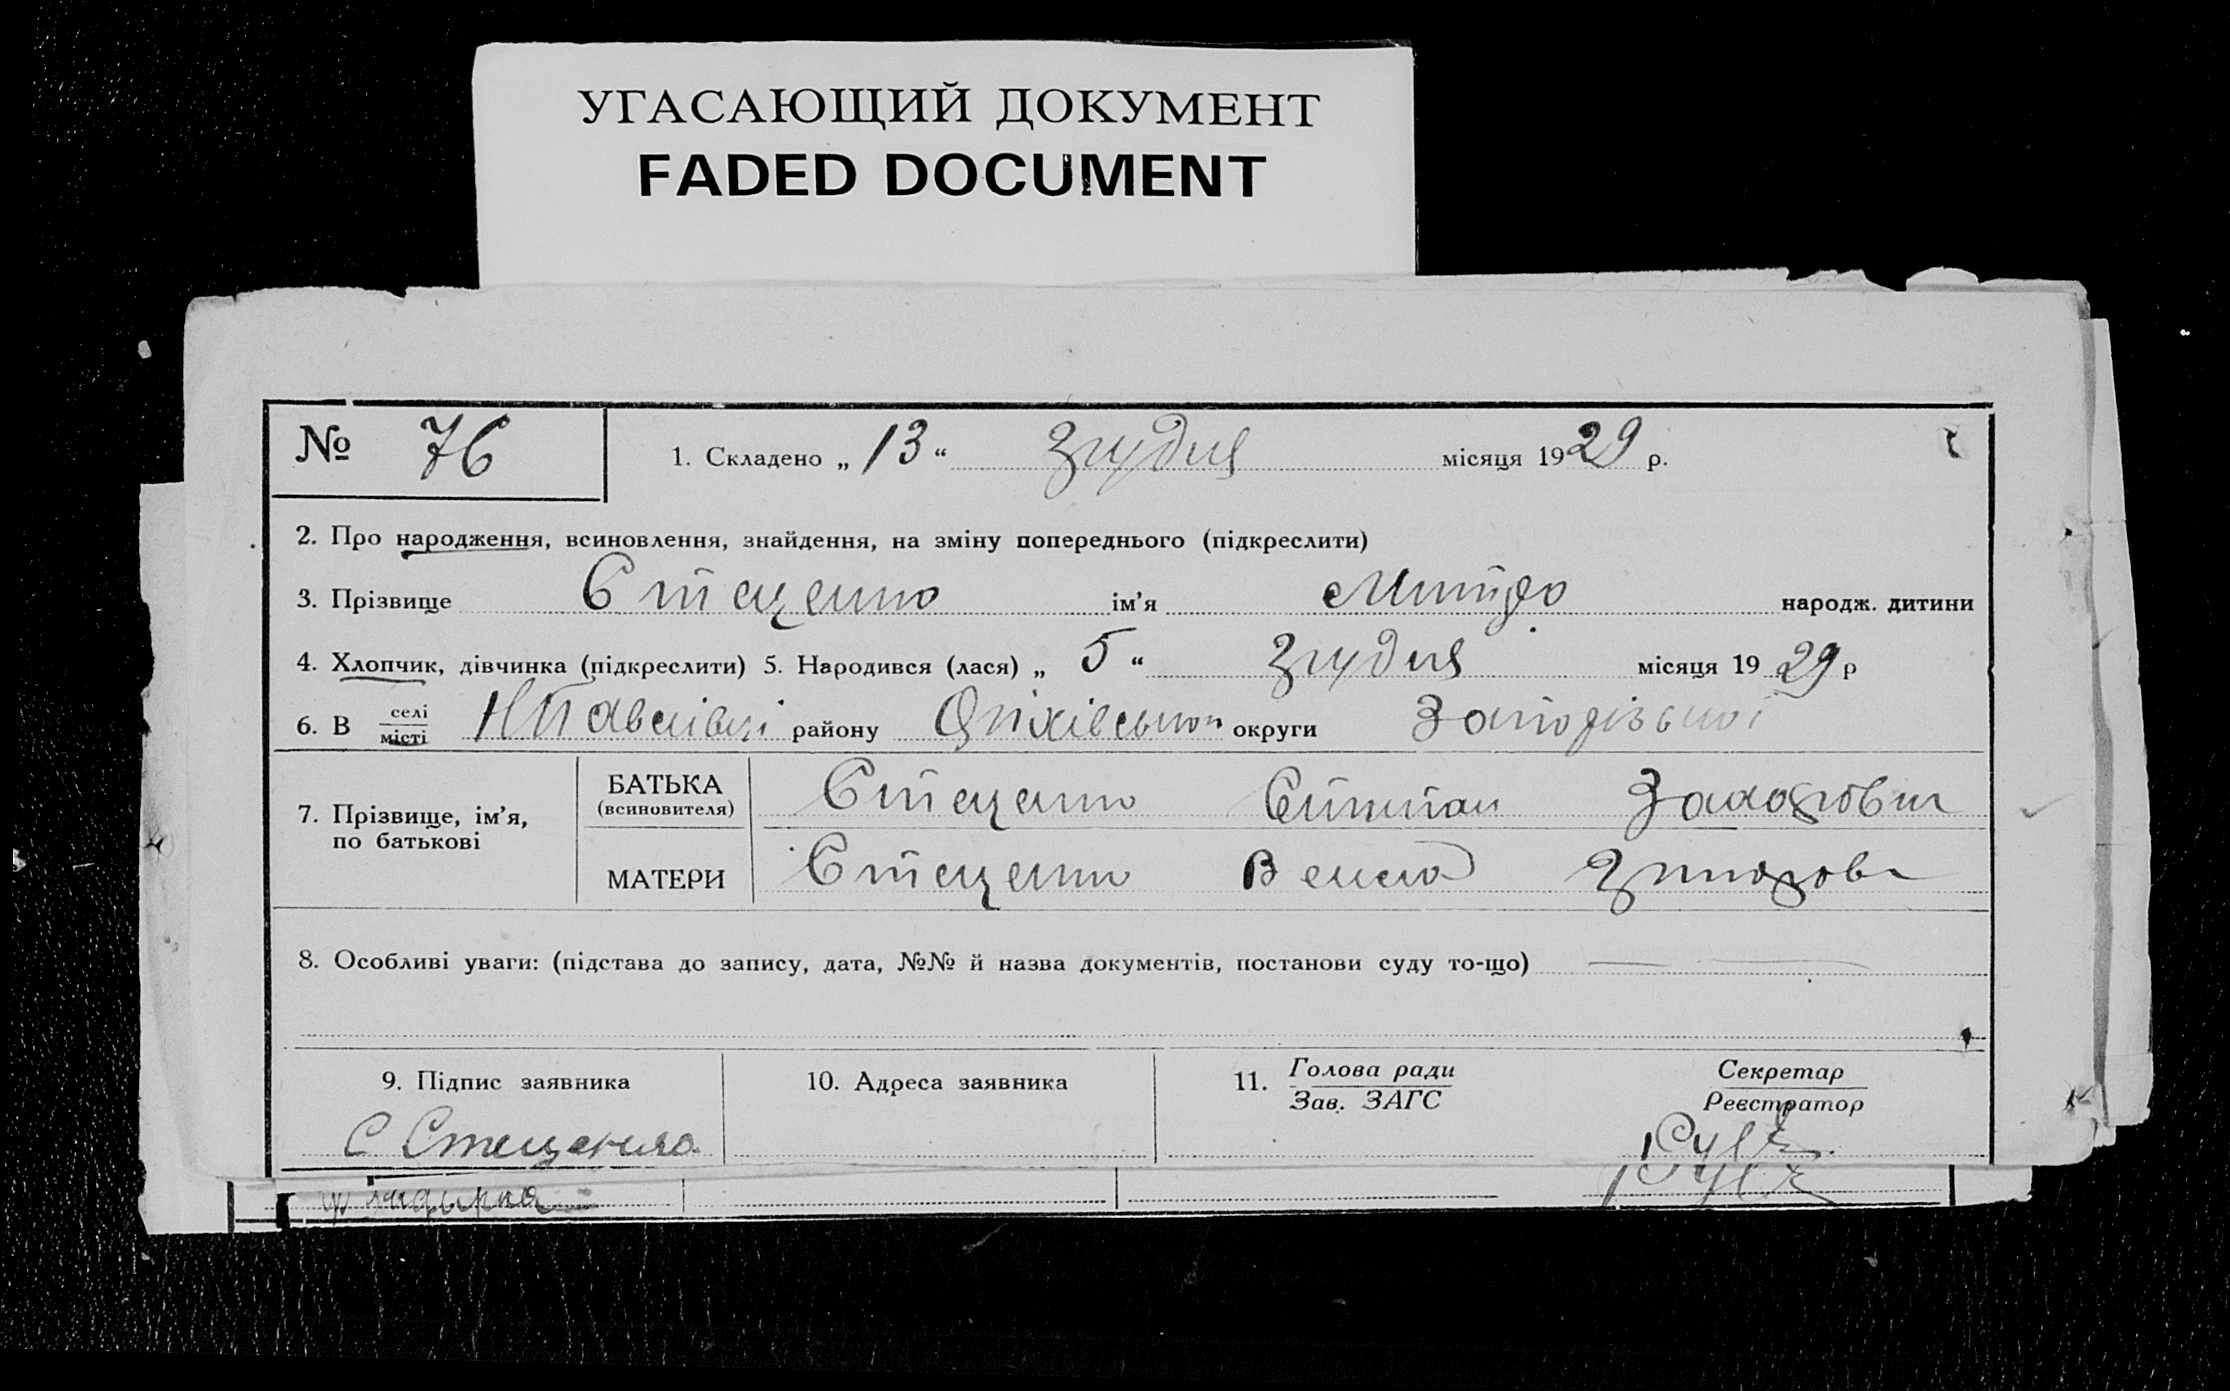 УГАСАЮЩИЙ ДОКУМЕНТ
FADED DOCUMENT
№ 76 1. Складено „ 13 “ Грудня місяця 1929 р.
2. Про народження, всиновлення, знайдення, на зміну попереднього (підкреслити)
3. Прізвище Стеценко ім’я Митро народж. дитини
4. Хлопчик, дівчинка (підкреслити) 5. Народився (лася) „ 5 “ Грудня місяця 1929 р
6. В селі
місті Н Павлівці району Оріхівського округи Запорізької
7. Прізвище, ім’я,
по батькові
БАТЬКА
(всиновителя) Стеценко Степан Захарович
МАТЕРИ Стеценко
8. Особливі уваги: (підстава до запису, дата, №№ й назва документів, постанови суду то-що)
9. Підпис заявника 10. Адреса заявника 11. Голова ради
Зав. ЗАГС Секретар
Реєстратор
С Стеценко